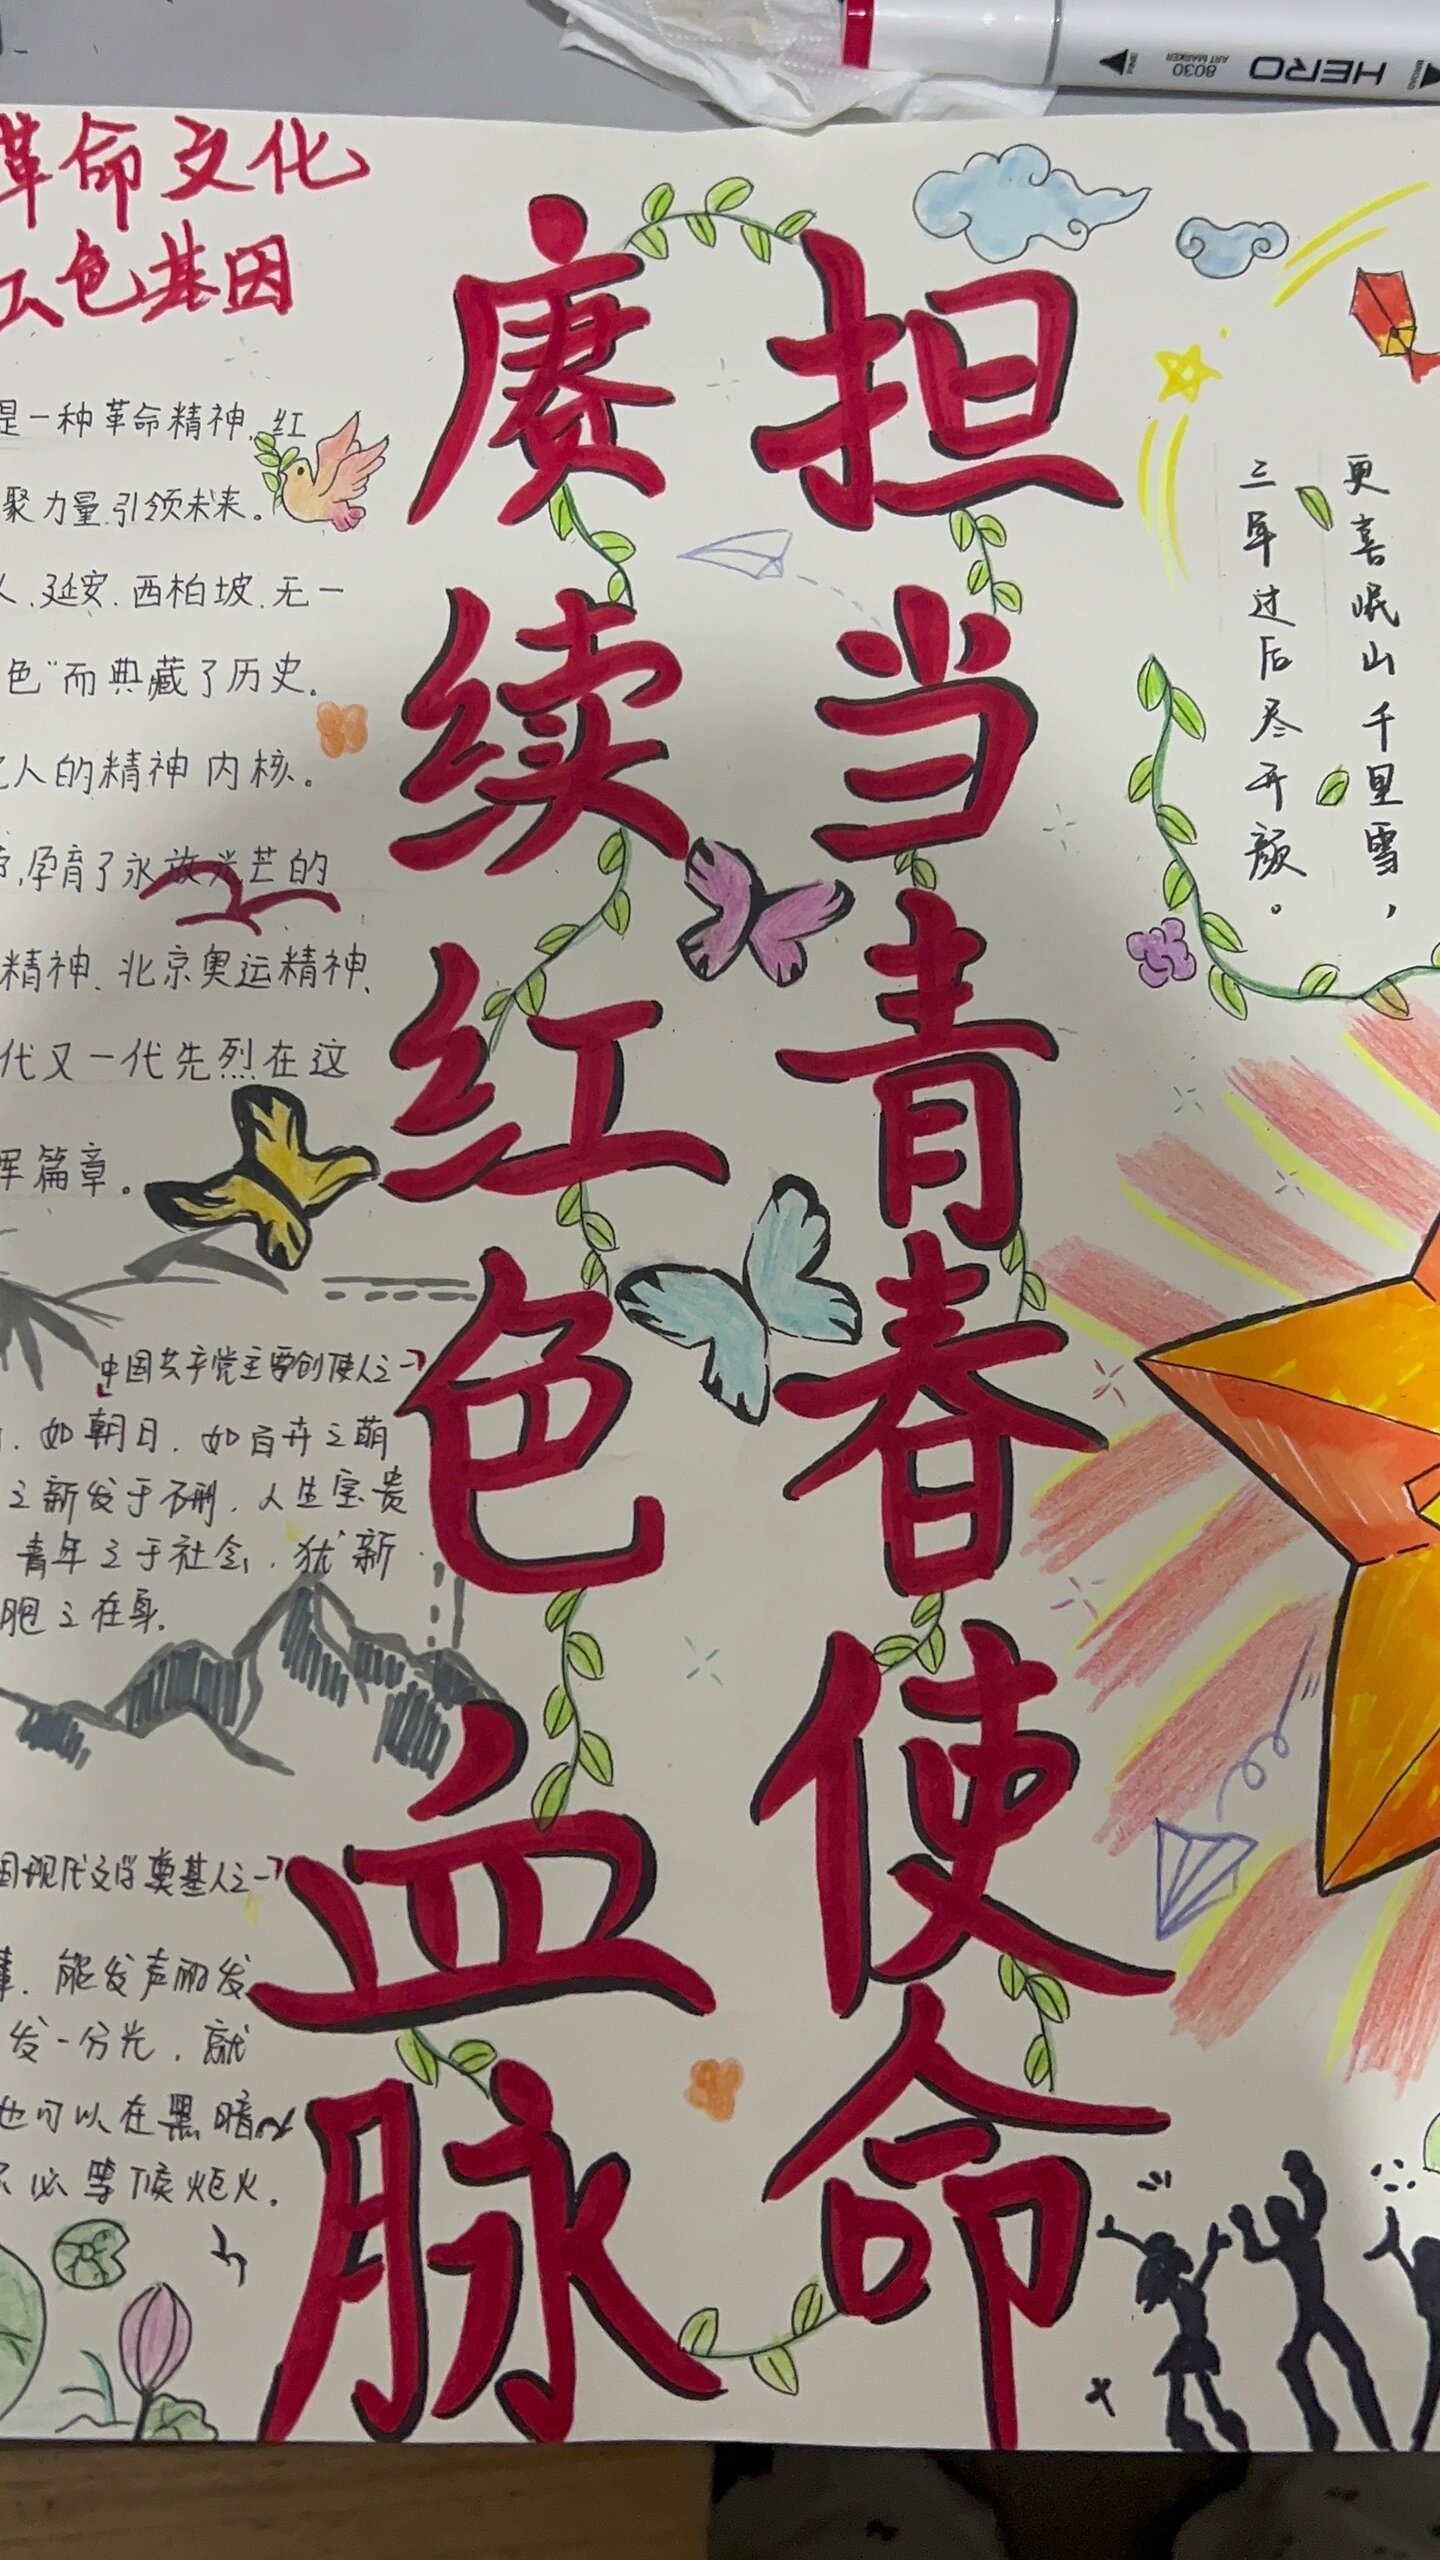 HERO
8030
ART MARKER
FINE
革命文化
红色基因
赓续红色血脉
担当青春使命
更喜岷山千里雪，
三军过后尽开颜。
是一种革命精神.红
聚力量.引领未来。
人.延安.西柏坡.无一
色"而典藏了历史.
人的精神内核。
,孕育了永放光芒的
精神.北京奥运精神.
代又一代先烈在这
辉篇章。
中国共产党主要创使人之一
.如朝日.如百卉之萌
之新发于不刑.人生宝贵
青年之于社会.犹新
胞之在身.
国现代文学奠基人之一
事.能发声的发
发一分光.就
也可以在黑暗
不必等候炬火.